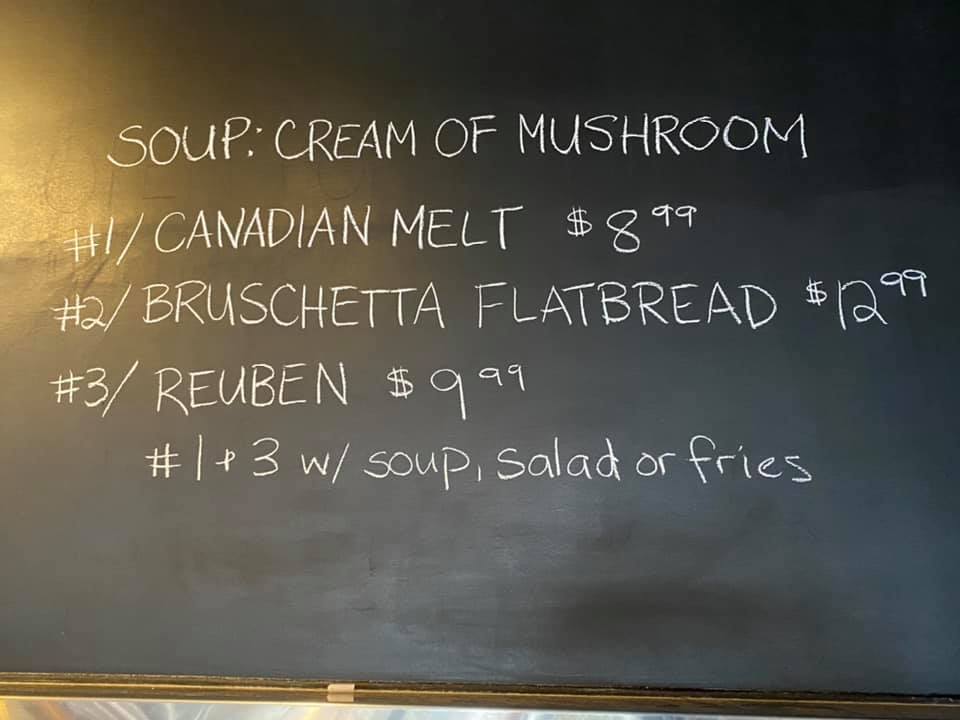 SOUP: CREAM OF MUSHROOM
#1/ CANADIAN MELT $8.99
#2/ BRUSCHETTA FLATBREAD $12.99
#3/ REUBEN $9.99
#1+3 w/ soup, salad or fries